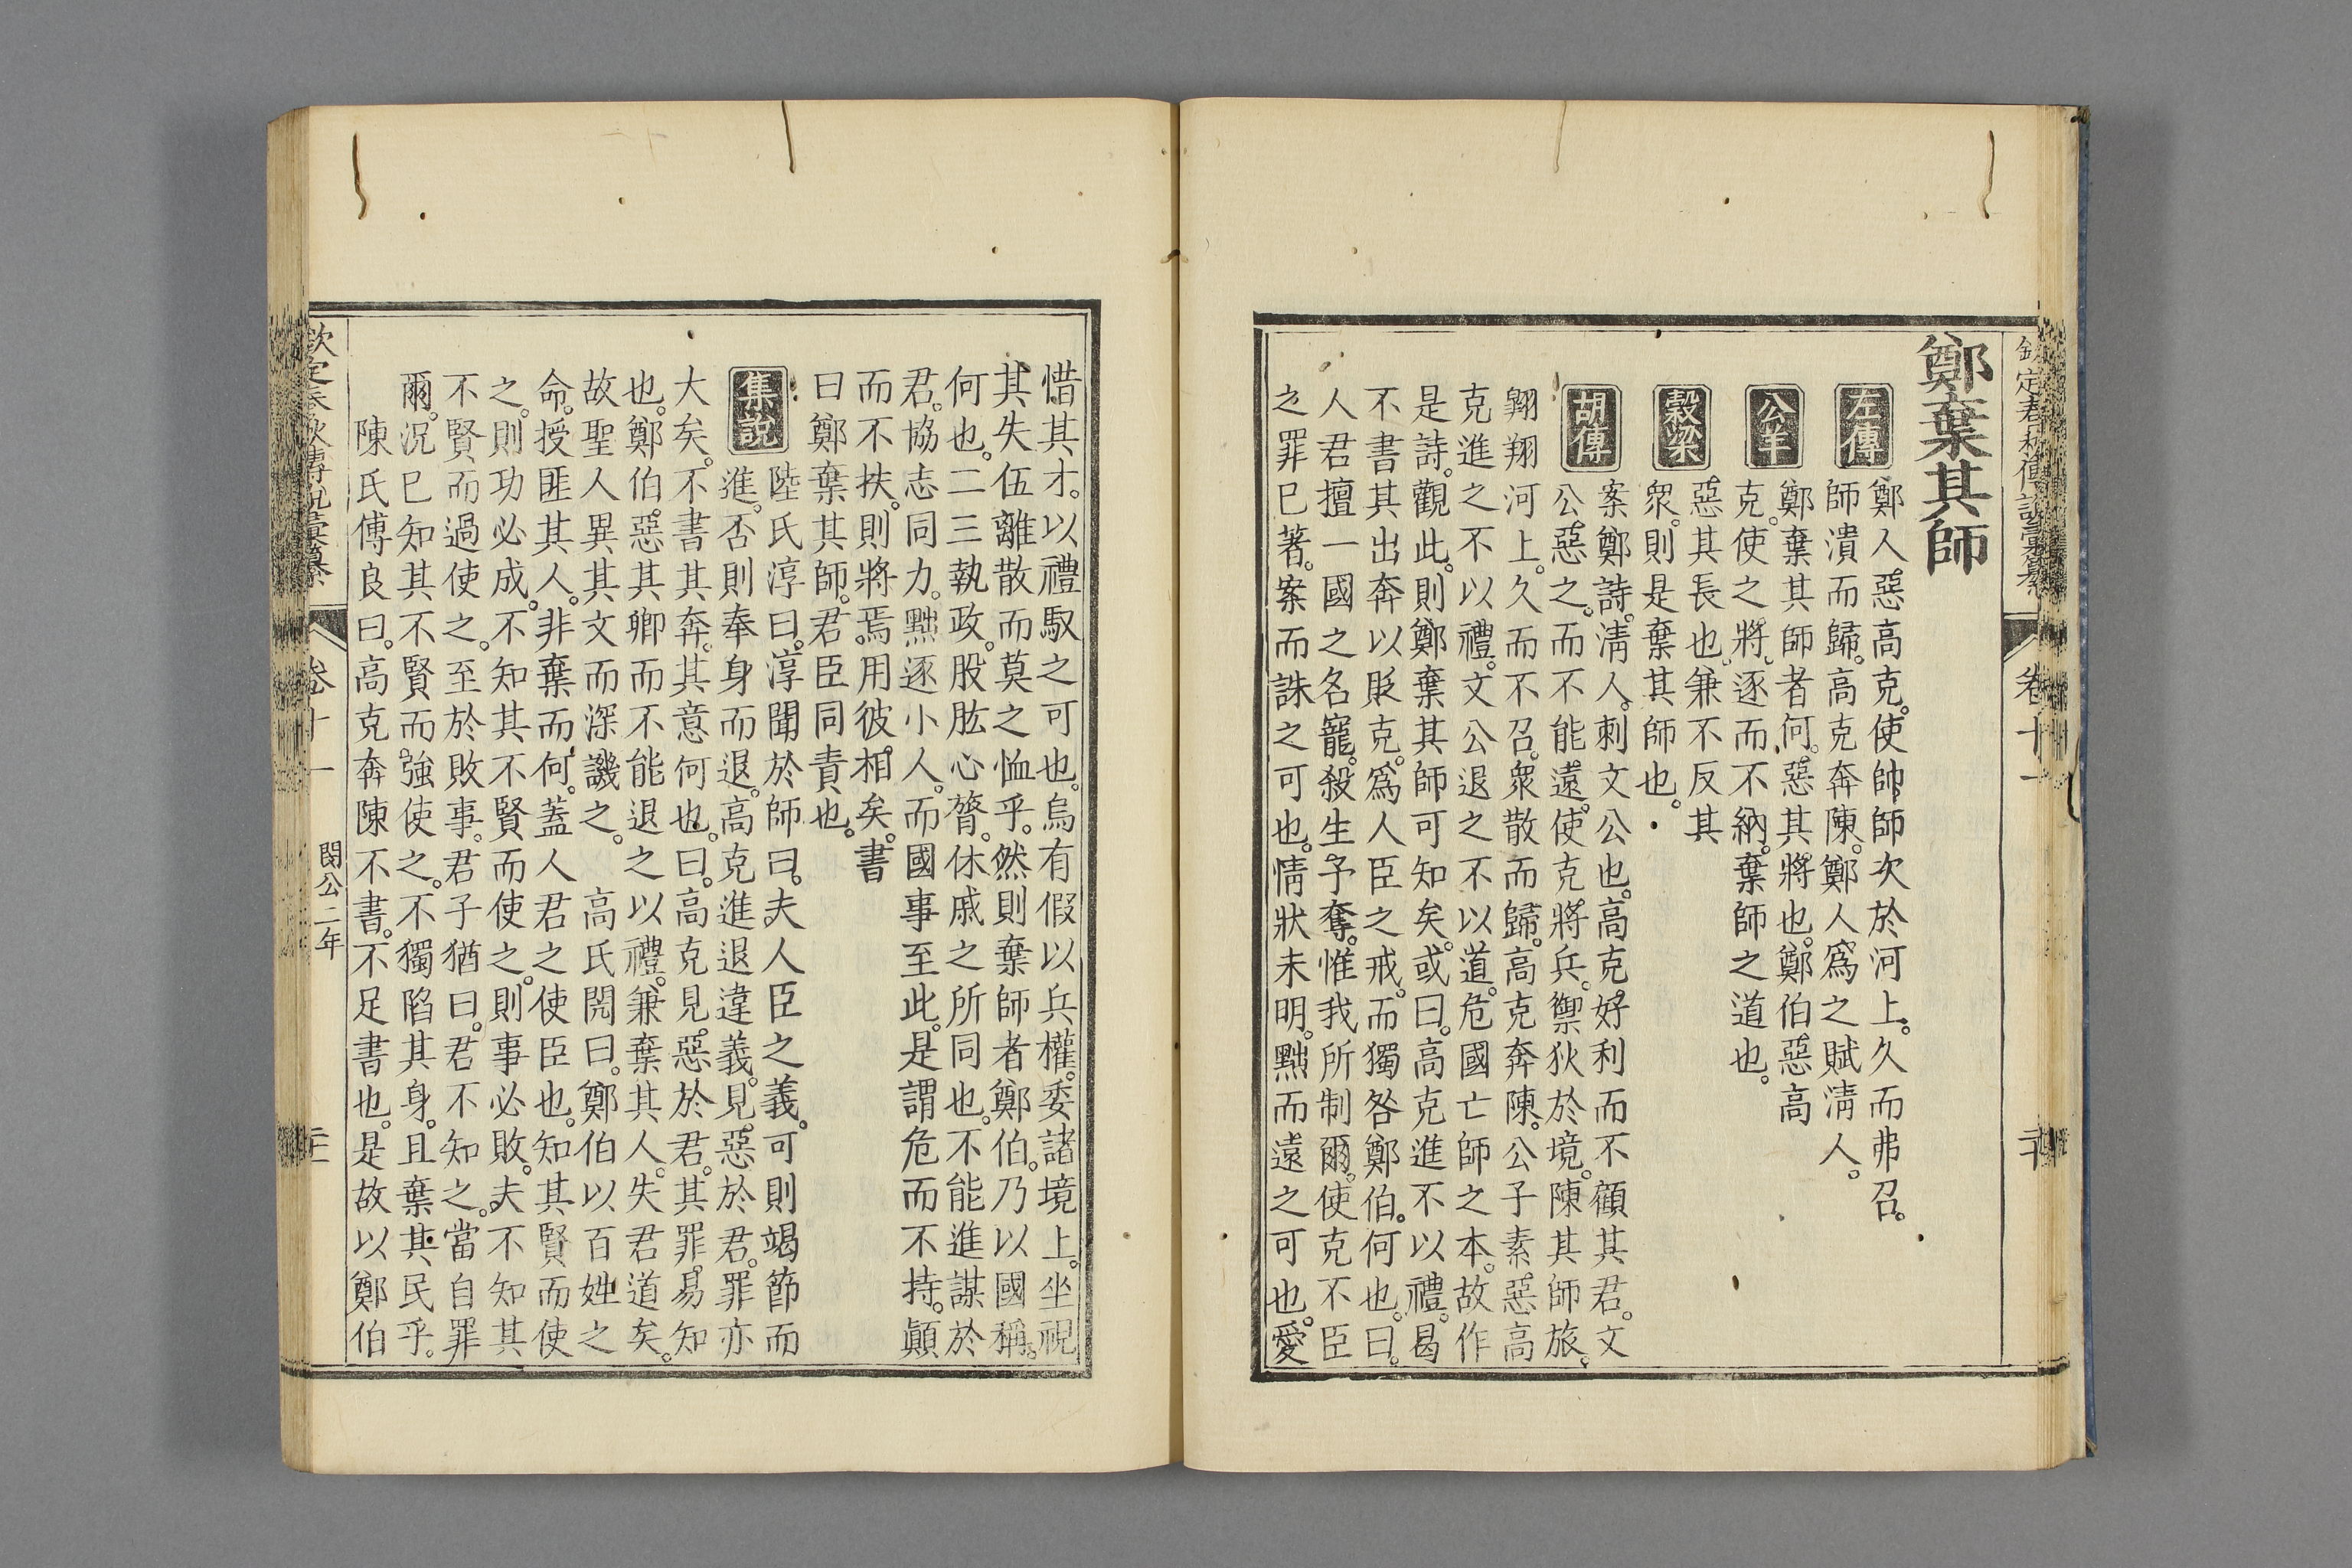 鄭棄其師
左傳
鄭人惡高克。使帥師次於河上。久而弗召。
師潰而歸。高克奔陳。鄭人爲之賦淸人。
公羊
鄭棄其師者何。惡其將也。鄭伯惡高
克。使之將。逐而不納。棄師之道也。
穀梁
惡其長也。兼不反其
衆。則是棄其師也。
胡傳
案鄭詩。淸人。刺文公也。高克好利而不顧其君。文
公惡之。而不能遠。使克將兵。禦狄於境。陳其師旅。
翺翔河上。久而不召。衆散而歸。高克奔陳。公子素。惡高
克進之不以禮。文公退之不以道。危國亡師之本。故作
是詩。觀此。則鄭棄其師可知矣。或曰。高克進不以禮。曷
不書其出奔以貶克。爲人臣之戒。而獨咎鄭伯。何也。曰。
人君擅一國之名寵。殺生予奪。惟我所制爾。使克不臣
之罪已著。案而誅之可也。情狀未明。黜而遠之可也。愛
惜其才。以禮馭之可也。烏有假以兵權。委諸境上。坐視
其失伍離散而莫之恤乎。然則棄師者鄭伯。乃以國稱。
何也。二三執政。股肱心膂。休戚之所同也。不能進謀於
君。協志同力。黜逐小人。而國事至此。是謂危而不持。顚
而不扶。則將焉用彼相矣。書
曰鄭棄其師。君臣同責也。
集說
陸氏淳曰。淳聞於師曰。夫人臣之義。可則竭節而
進。否則奉身而退。高克進退違義。見惡於君。罪亦
大矣。不書其奔。其意何也。曰。高克見惡於君。其罪易知
也。鄭伯惡其卿而不能退之以禮。兼棄其人。失君道矣。
故聖人異其文而深譏之。 高氏閌曰。鄭伯以百姓之
命。授匪其人。非棄而何。蓋人君之使臣也。知其賢而使
之。則功必成。不知其不賢而使之。則事必敗。夫不知其
不賢而過使之。至於敗事。君子猶曰。君不知之。當自罪
爾。況已知其不賢而強使之。不獨陷其身。且棄其民乎。
陳氏傅良曰。高克奔陳不書。不足書也。是故以鄭伯
閔公二年